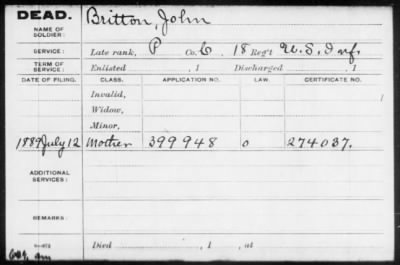 DEAD.
NAME OF SOLDIER: Britton, John
SERVICE: Late rank, P Co. C, 18 Reg't U.S. Inf.
TERM OF SERVICE: Enlisted , 1 Discharged , 1
DATE OF FILING. CLASS. APPLICATION NO. LAW. CERTIFICATE NO.
Invalid,
Widow,
Minor,
1889 July 12 Mother 399948 0 274037.
ADDITIONAL SERVICES:
REMARKS:
Died , 1 , at